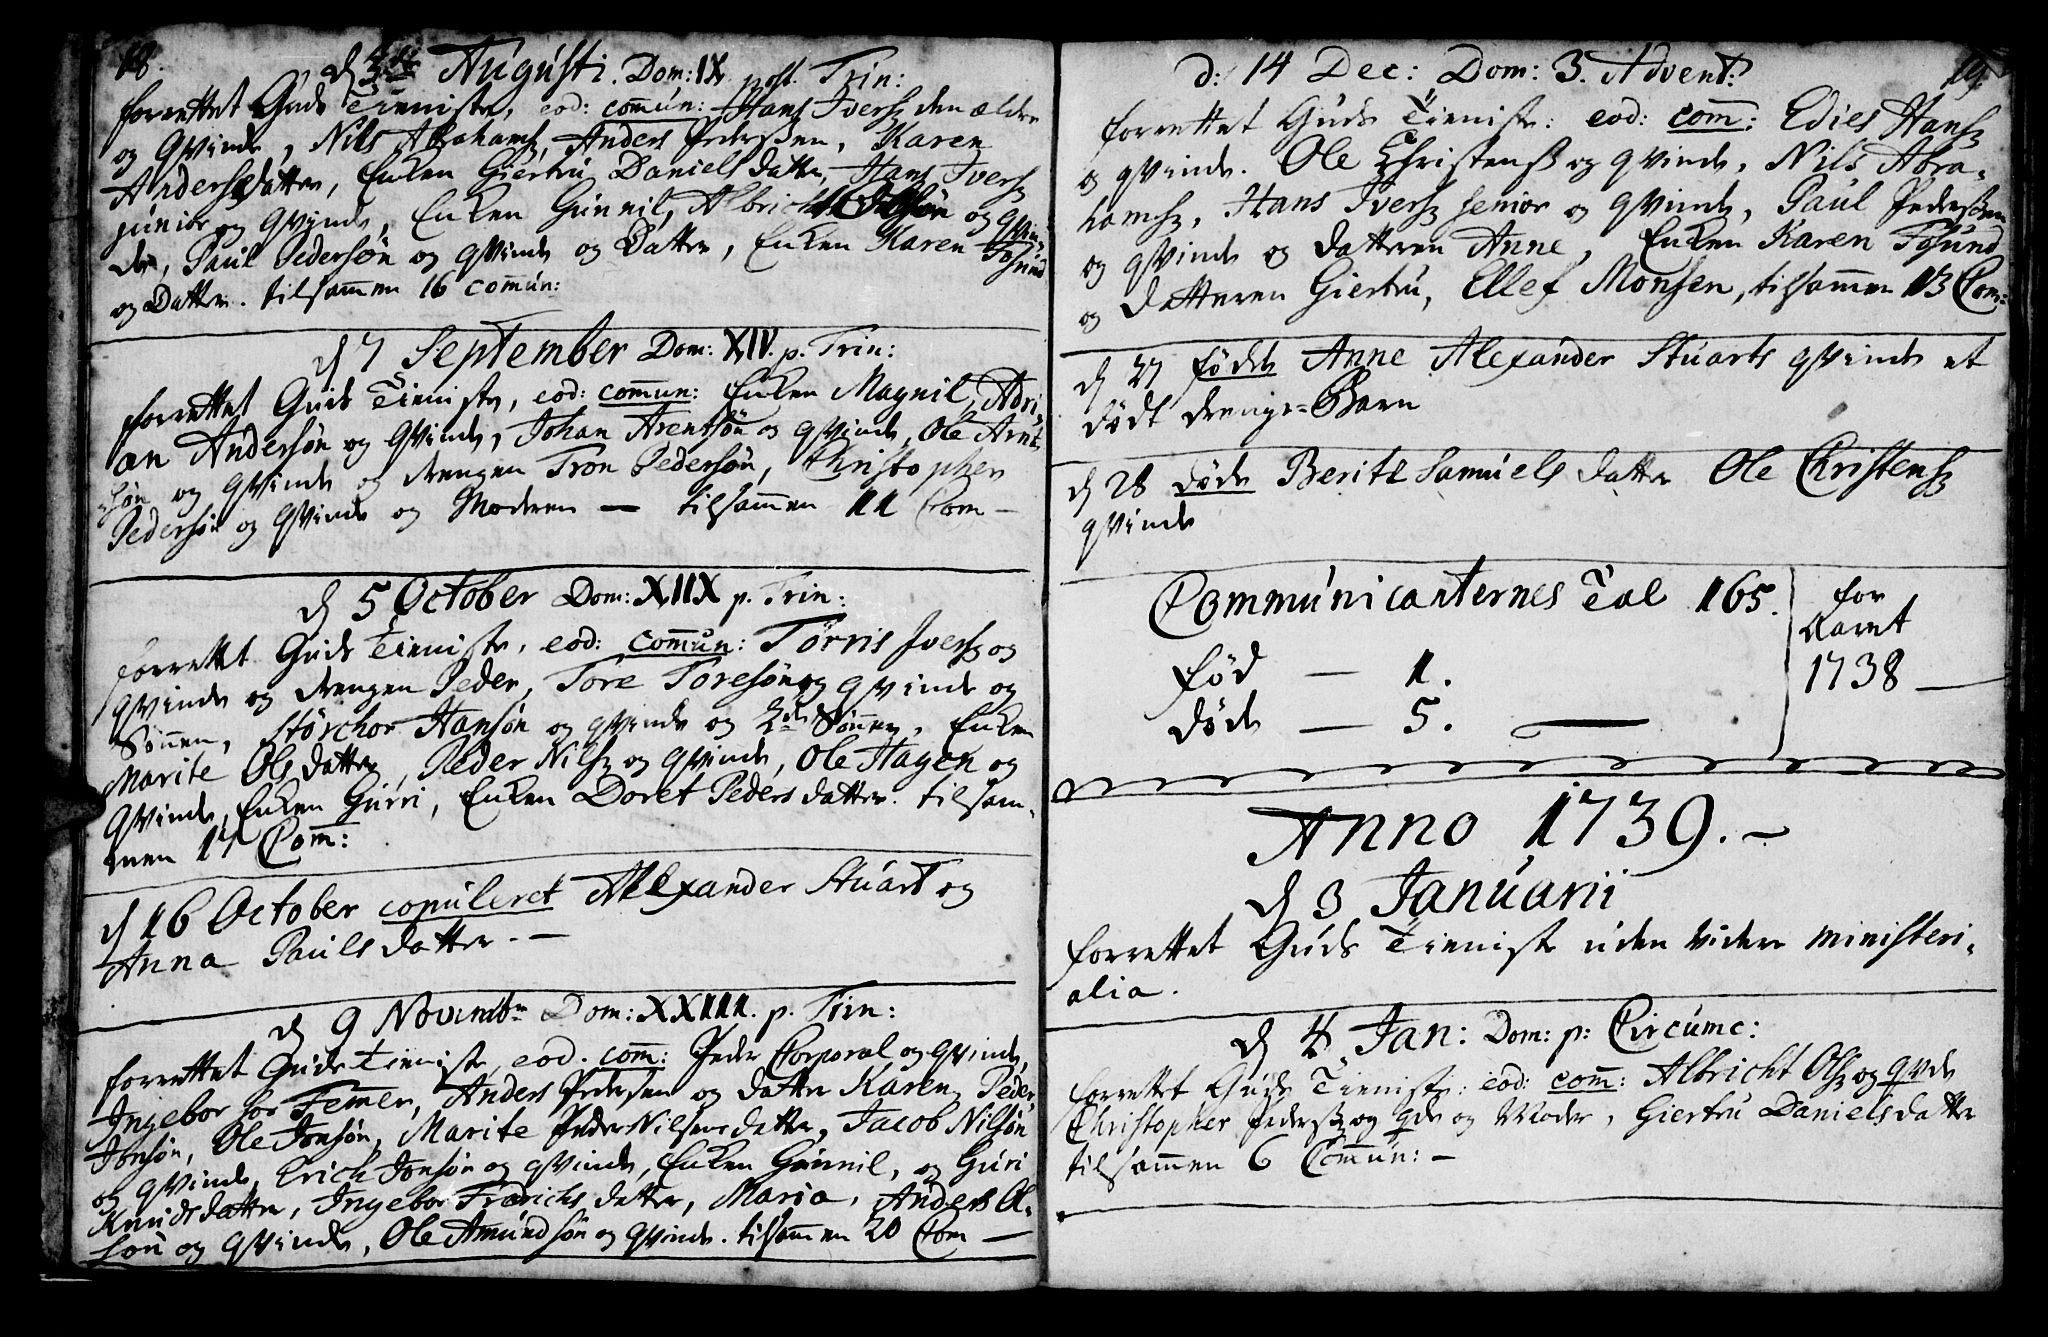 18.
d 3die Augusti. Dom: IX post. Trin:
forrettet Guds Tieniste, eod: comun: Hans Ivers: den ældre
og Qvinde, Nils Abrahams, Anders Pederssen, Karen
Andersdatter, Enken Giertru Daniels datter, Hans Ivers:
junior og Qvinde, Enken Gunnil, Albricht Olsøn og Qvin-
de, Paul Pedersøn og Qvinde og Datter, Enken Karen Tosund
og Datter. tilsammen 16 comun:
d 7 September Dom: XIV. p. Trin:
forrettet Guds Tieniste, eod: comun: Enken Magnil, Adri-
an Andersøn og Qvinde, Johan Arentsøn og Qvinde, Ole Arnt-
søn og Qvinde og drengen Tron Pedersøn, Christopher
Pedersøn og Qvinde og Moderen — tilsammen 11 Com —
d 5 October Dom: XIIX p. Trin:
forrettet Guds Tieniste, eod: comun: Tørris Ivers: og
Qvinde og drengen Peder, Tore Toresøn og Qvinde og
Sønnen, Størchor Hansøn og Qvinde og 2de Sønner, Enken
Marite Ols datter, Peder Nils: og Qvinde, Ole Hagen og
Qvinde, Enken Gurri, Enken Doret Peders datter. tilsam-
men 17 Com:
d 16 October copuleret Alexander Stuart og
Anna Pauls datter. —
d 9 Novembr Dom: XXIII. p. Trin:
forrettet Guds Tieniste, eod. com: Peder Corporal og Qvinde,
Ingebor hos Femer, Anders Pedersen og datter Karen, Peder
Jonsøn, Ole Jonsøn, Marite Peder Nilsens datter, Jacob Nilsøn
og Qvinde, Erich Jonsøn og Qvinde, Enken Gunnil, og Guri
Knudsdatter, Ingebor Fredrichs datter, Maria, Anders Ol-
søn og Qvinde, Ole Amundsøn og Qvinde. tilsammen 20 Com —
19.
d: 14 Dec: Dom: 3. Advent:
forrettet Guds Tieniste: eod: com: Edies Hans:
og Qvinde. Ole Christens: og Qvinde, Nils Abra-
hams:, Hans Ivers: senior og Qvinde, Paul Pederssen
og Qvinde og datteren Anne, Enken Karen Tosund
og datteren Giertru, Ellef Monsen, tilsammen 13 Com:
d 27 fødde Anne Alexander Stuarts Qvinde et
dødt drenge-Barn
d 28 døde Berite Samuels datter Ole Christens:
Qvinde
Communicanternes Tal 165. for
Aaret
fød — 1. 1738 —
døde — 5. —
Anno 1739. —
d 3 Januarii
forrettet Guds Tieniste uden videre ministeri-
alia.
d 4 Jan: Dom: p: Circumc:
forrettet Guds Tieniste: eod: com: Albricht Ols: og Qvde
Christopher Peders: og Qde og Moder, Giertru Daniels datter
tilsammen 6 Commun: —